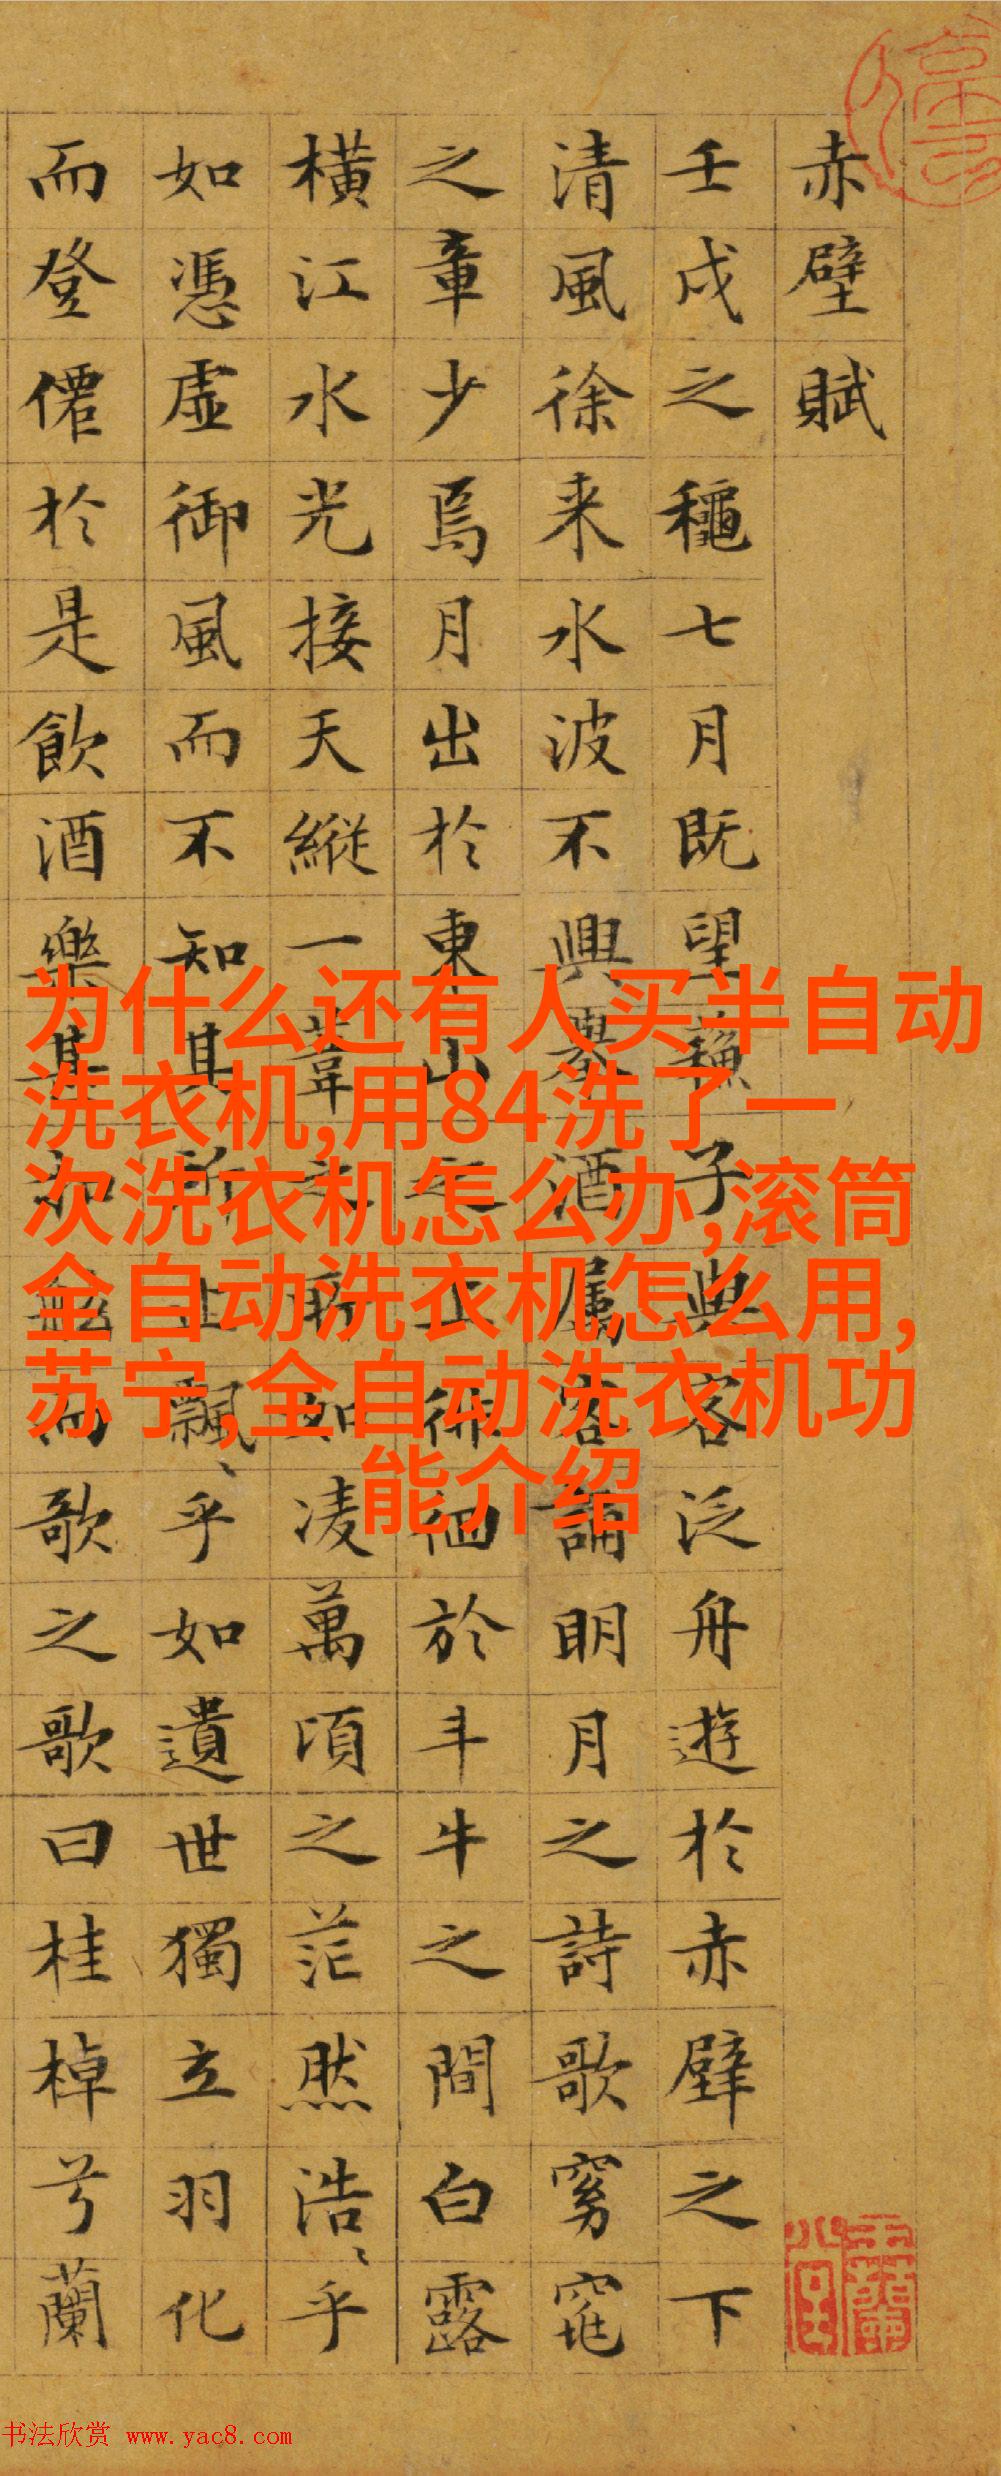 赤壁賦
壬戌之穐七月既望蘓子與客泛舟遊於赤壁之下
清風徐来水波不興舉酒屬客誦明月之詩歌窈窕
之章少焉月出於東山之上徘徊於斗牛之間白露
橫江水光接天縱一葦之所如凌萬頃之茫然浩〻乎
如憑虛御風而不知其所止飄〻乎如遺世獨立羽化
而登僊於是飲酒樂甚扣舷而歌之歌曰桂棹兮蘭
为什么还有人买半自动
洗衣机,用84洗了一
次洗衣机怎么办,滚筒
全自动洗衣机怎么用,
苏宁,全自动洗衣机功
能介绍
书法欣赏 www.yac8.com